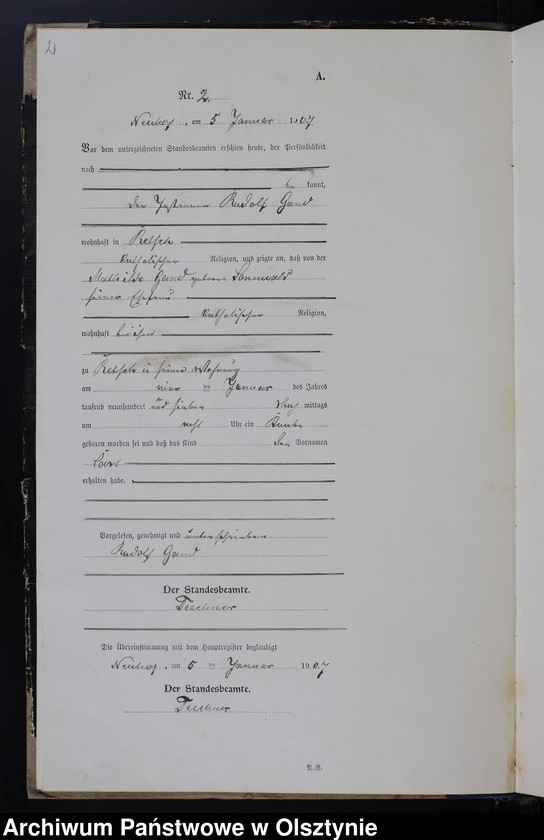 2
A.
Nr. 2.
Neuhof, am 5 Januar 1907
Vor dem unterzeichneten Standesbeamten erschien heute, der Persönlichkeit
nach
be kannt,
der Rudolf Gand
wohnhaft in
katholischer Religion, und zeigte an, daß von der
Gand geborene
seiner Ehefrau
katholischer Religion,
wohnhaft bei ihm
zu in seiner Wohnung
am vier ten Januar des Jahres
tausend neunhundert und sieben Vor mittags
um acht Uhr ein Knabe
geboren worden sei und daß das Kind den Vornamen
erhalten habe.
Vorgelesen, genehmigt und unterschrieben
Rudolf Gand
Der Standesbeamte.
Teschner
Die Übereinstimmung mit dem Hauptregister beglaubigt
Neuhof, am 5 ten Januar 1907
Der Standesbeamte.
Teschner
Archiwum Państwowe w Olsztynie